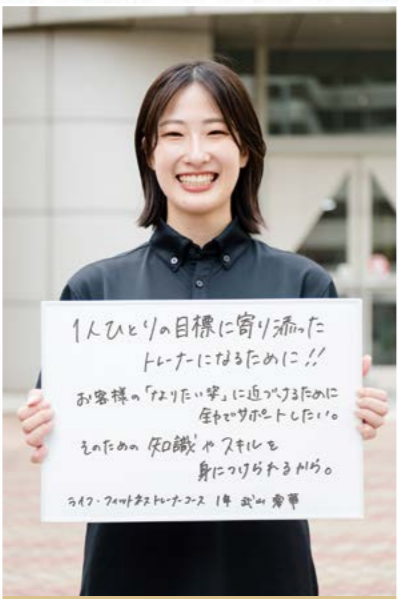 1人ひとりの目標に寄り添った
トレーナーになるために!!
お客様の「なりたい姿」に近づけるために
全力でサポートしたい。
そのための知識やスキルを
身につけられるから。
ライフ・フィットネストレーナーコース 1年 武山